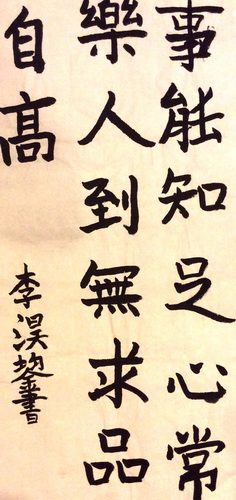 事能知足心常
樂人到無求品
自高
李淏書